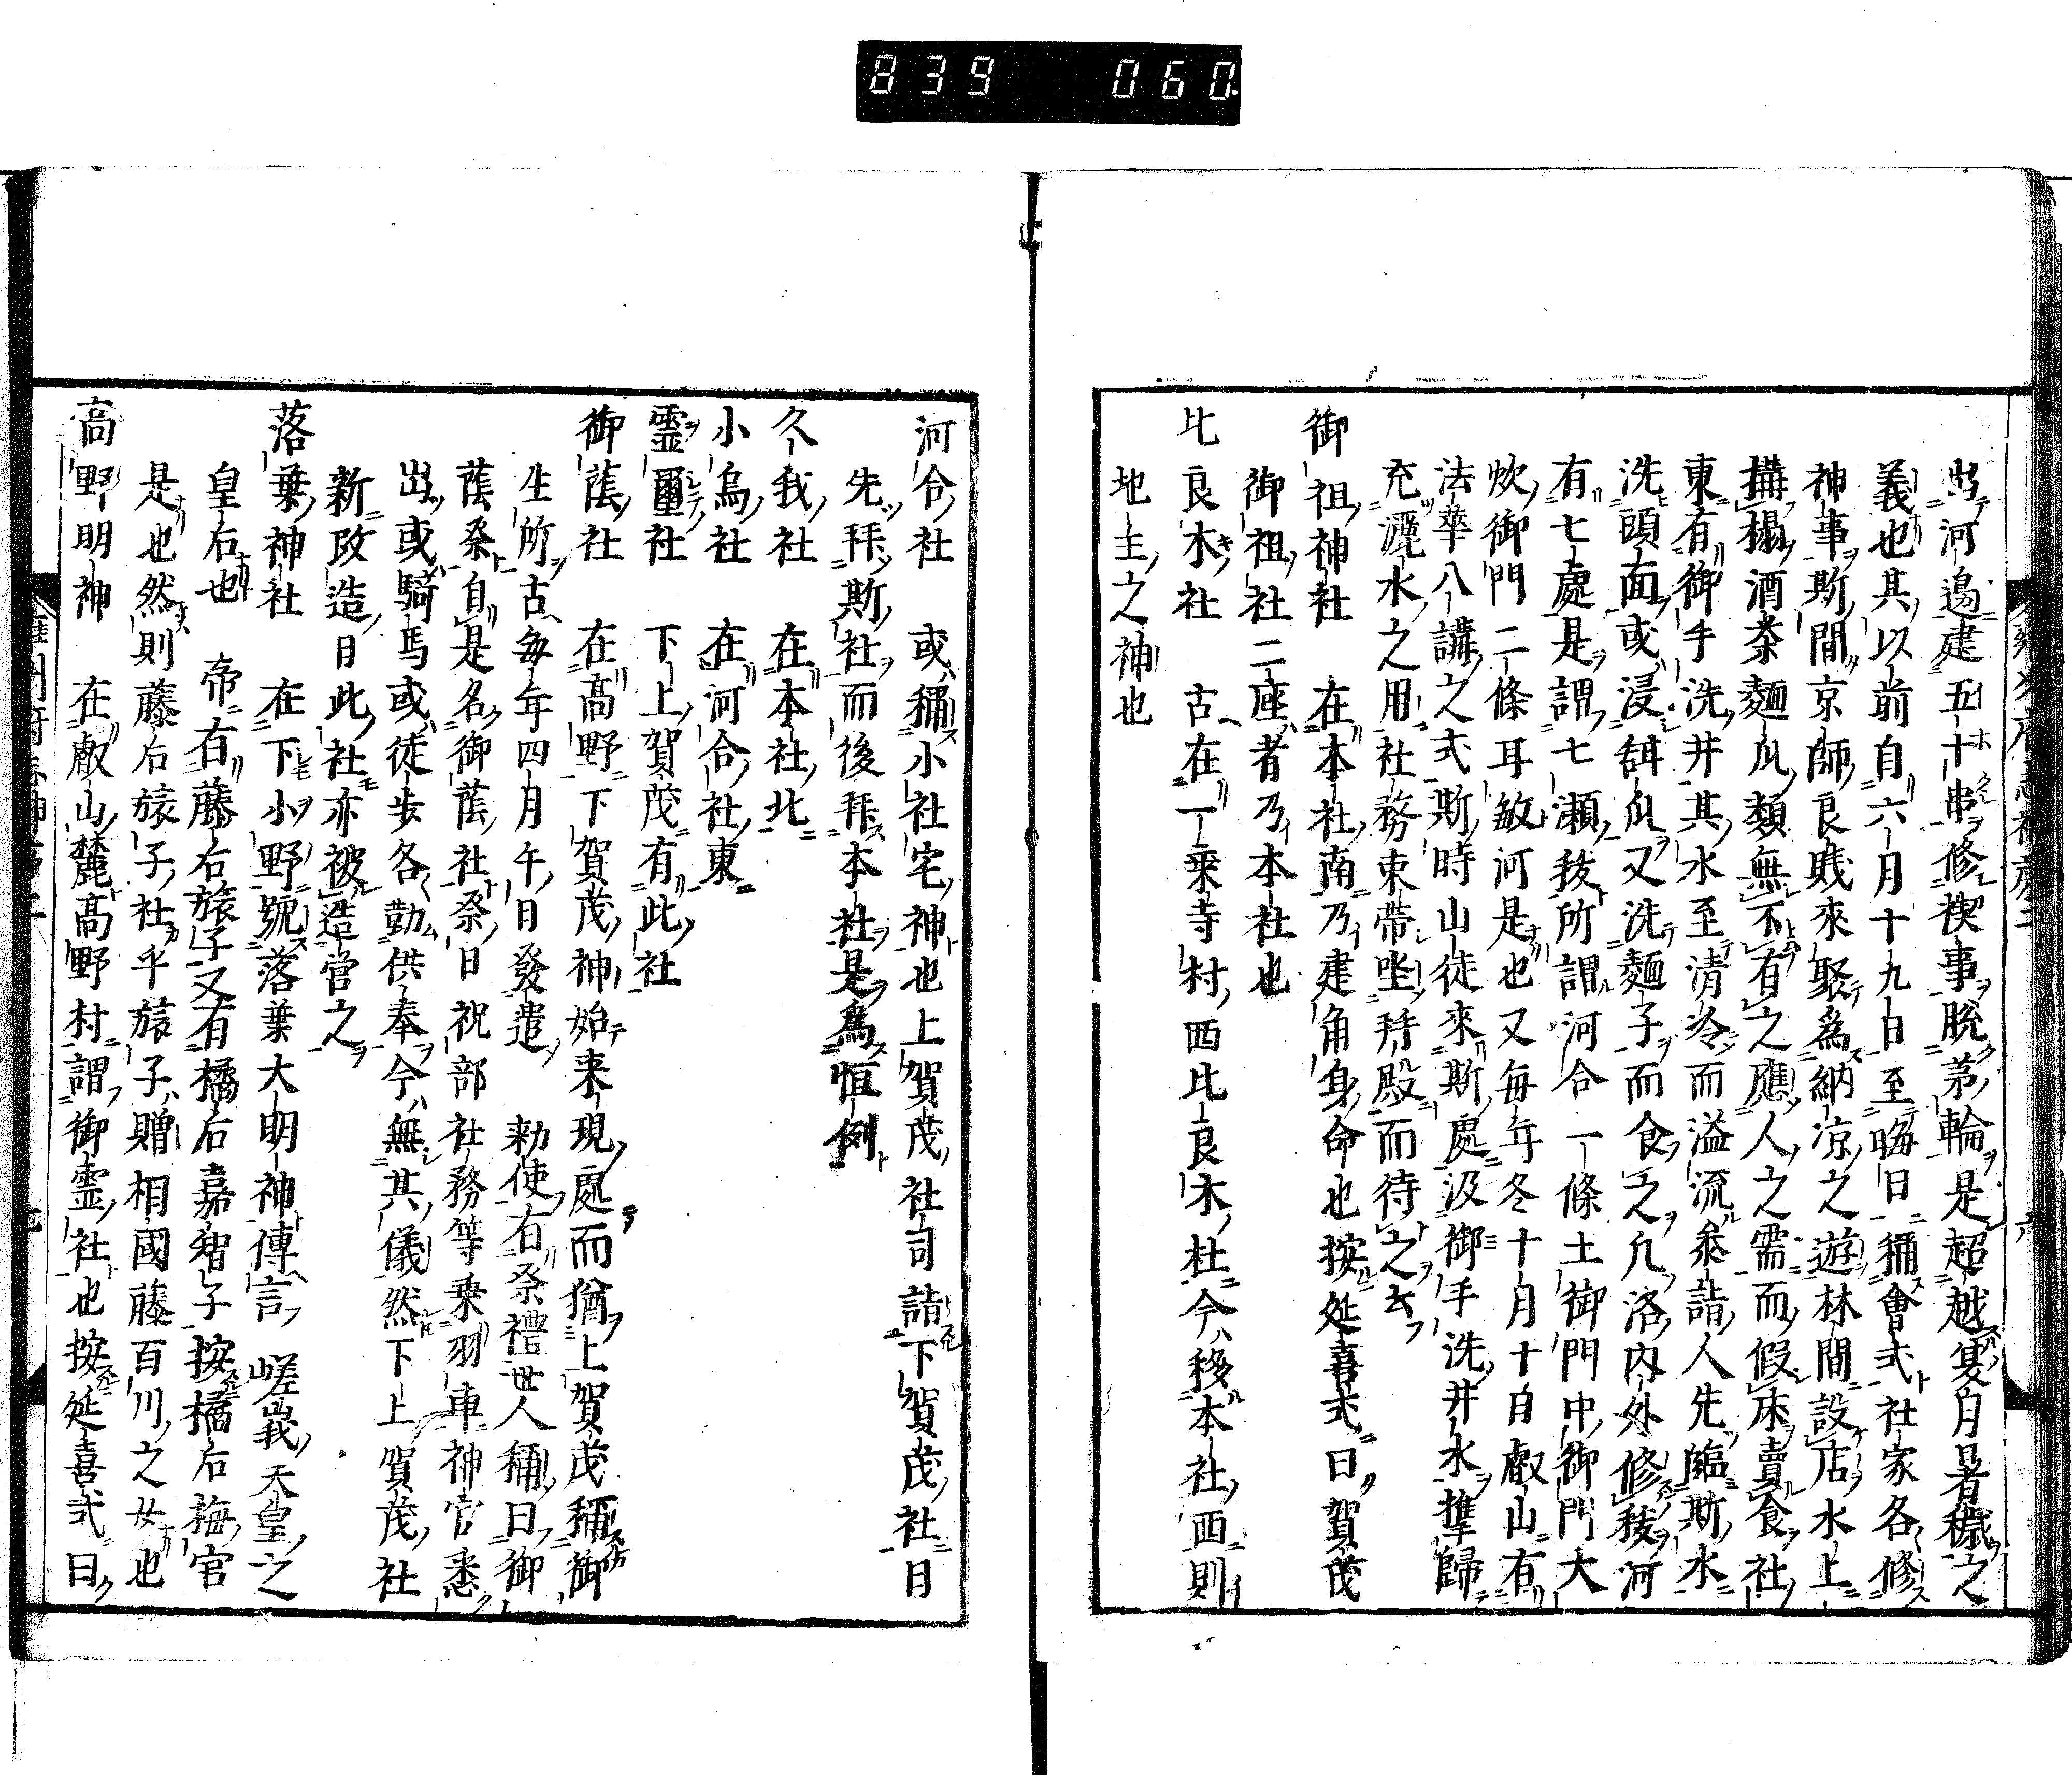 839 060
出河邊建五十串修禊事脫茅輪是超越夏月暑穢之
義也其以前自六月十九日至晦日稱會式社家各修
神事斯間京師良賤來聚為納凉之遊林間設店水上
搆榻酒茶麵瓜類無不有之應人之需而假床賣食社
東有御手洗井其水至清冷而溢流参詣人先臨斯水
洗頭面或浸甜瓜又洗麵子而食之凡洛內外修祓河
有七處是謂七瀬祓所謂河合一條土御門中御門大
炊御門二條耳敏河是也又每年冬十月十日叡山有
法華八講之式斯時山徒來斯處汲御手洗井水携歸
充灑水之用社務束帶坐拜殿而待之云
御祖神社　在本社南乃建角身命也按延喜式曰賀茂
御祖社二座者乃本社也
比良木社　古在一乘寺村西比良木杜今移本社西則
地主之神也
河合社　或稱小社宅神也上賀茂社司詣下賀茂社日
先拜斯社而後拜本社是為恒例
久我社　在本社北
小烏社　在河合社東
靈璽社　下上賀茂有此社
御蔭社　在髙野下賀茂神始来現處而猶上賀茂稱御
生所古每年四月午日發遣　勅使有祭禮世人稱曰御
蔭祭自是名御蔭社祭日祝部社務等乗羽車神官悉
出或騎馬或徒步各勤供奉今無其儀然下上賀茂社
新改造日此社亦被造营之
落葉神社　在下小野號落葉大明神傳言　嵯峩天皇之
皇后也　帝有藤后旅子又有橘后嘉智子按橘后梅宮
是也然則藤后旅子社乎旅子贈相國藤百川之女也
高野明神　在叡山麓髙野村謂御霊社也按延喜式曰